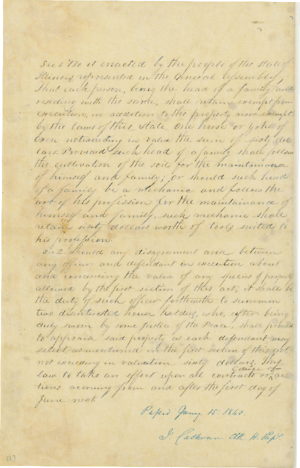 Sec 1 Be it enacted by the people of the State of
Illinois represented in the General Assembly,
That each person, being the head of a family, and
residing with the same, shall retain exempt from
execution, in addition to the property now exempt
by the laws of this State, One horse or yoke of
Oxen not exceeding in value the sum of sixty dol
lars Provided Such head of a family shall follow
the cultivation of the soil for the maintainance
of himself and family; or should such head
of a family be a Mechanic and follows the
art of his profession for the maintainance of
himself and family, such mechanic shall
retain sixty dollars worth of tools suited to
his profession
Sec 2 Should any disagreement arise between
any officer and defendant in execution about
and concerning the value of any species of property
allowed by the first section of this act, it shall be
the duty of such officer forthwith to summon
two disinterested house holders, who, after being
duly sworn by some Justice of the Peace, shall proceed
to appraise said property as each defendant may
select as mentioned in the first section of this act
not exceeding in valuation sixty dollars. This
law to take an effect upon all contracts or causes of
actions accruing from and after the first day of
June next
Passed Jany 15 1840
J. Calhoun Clk H. Reps.